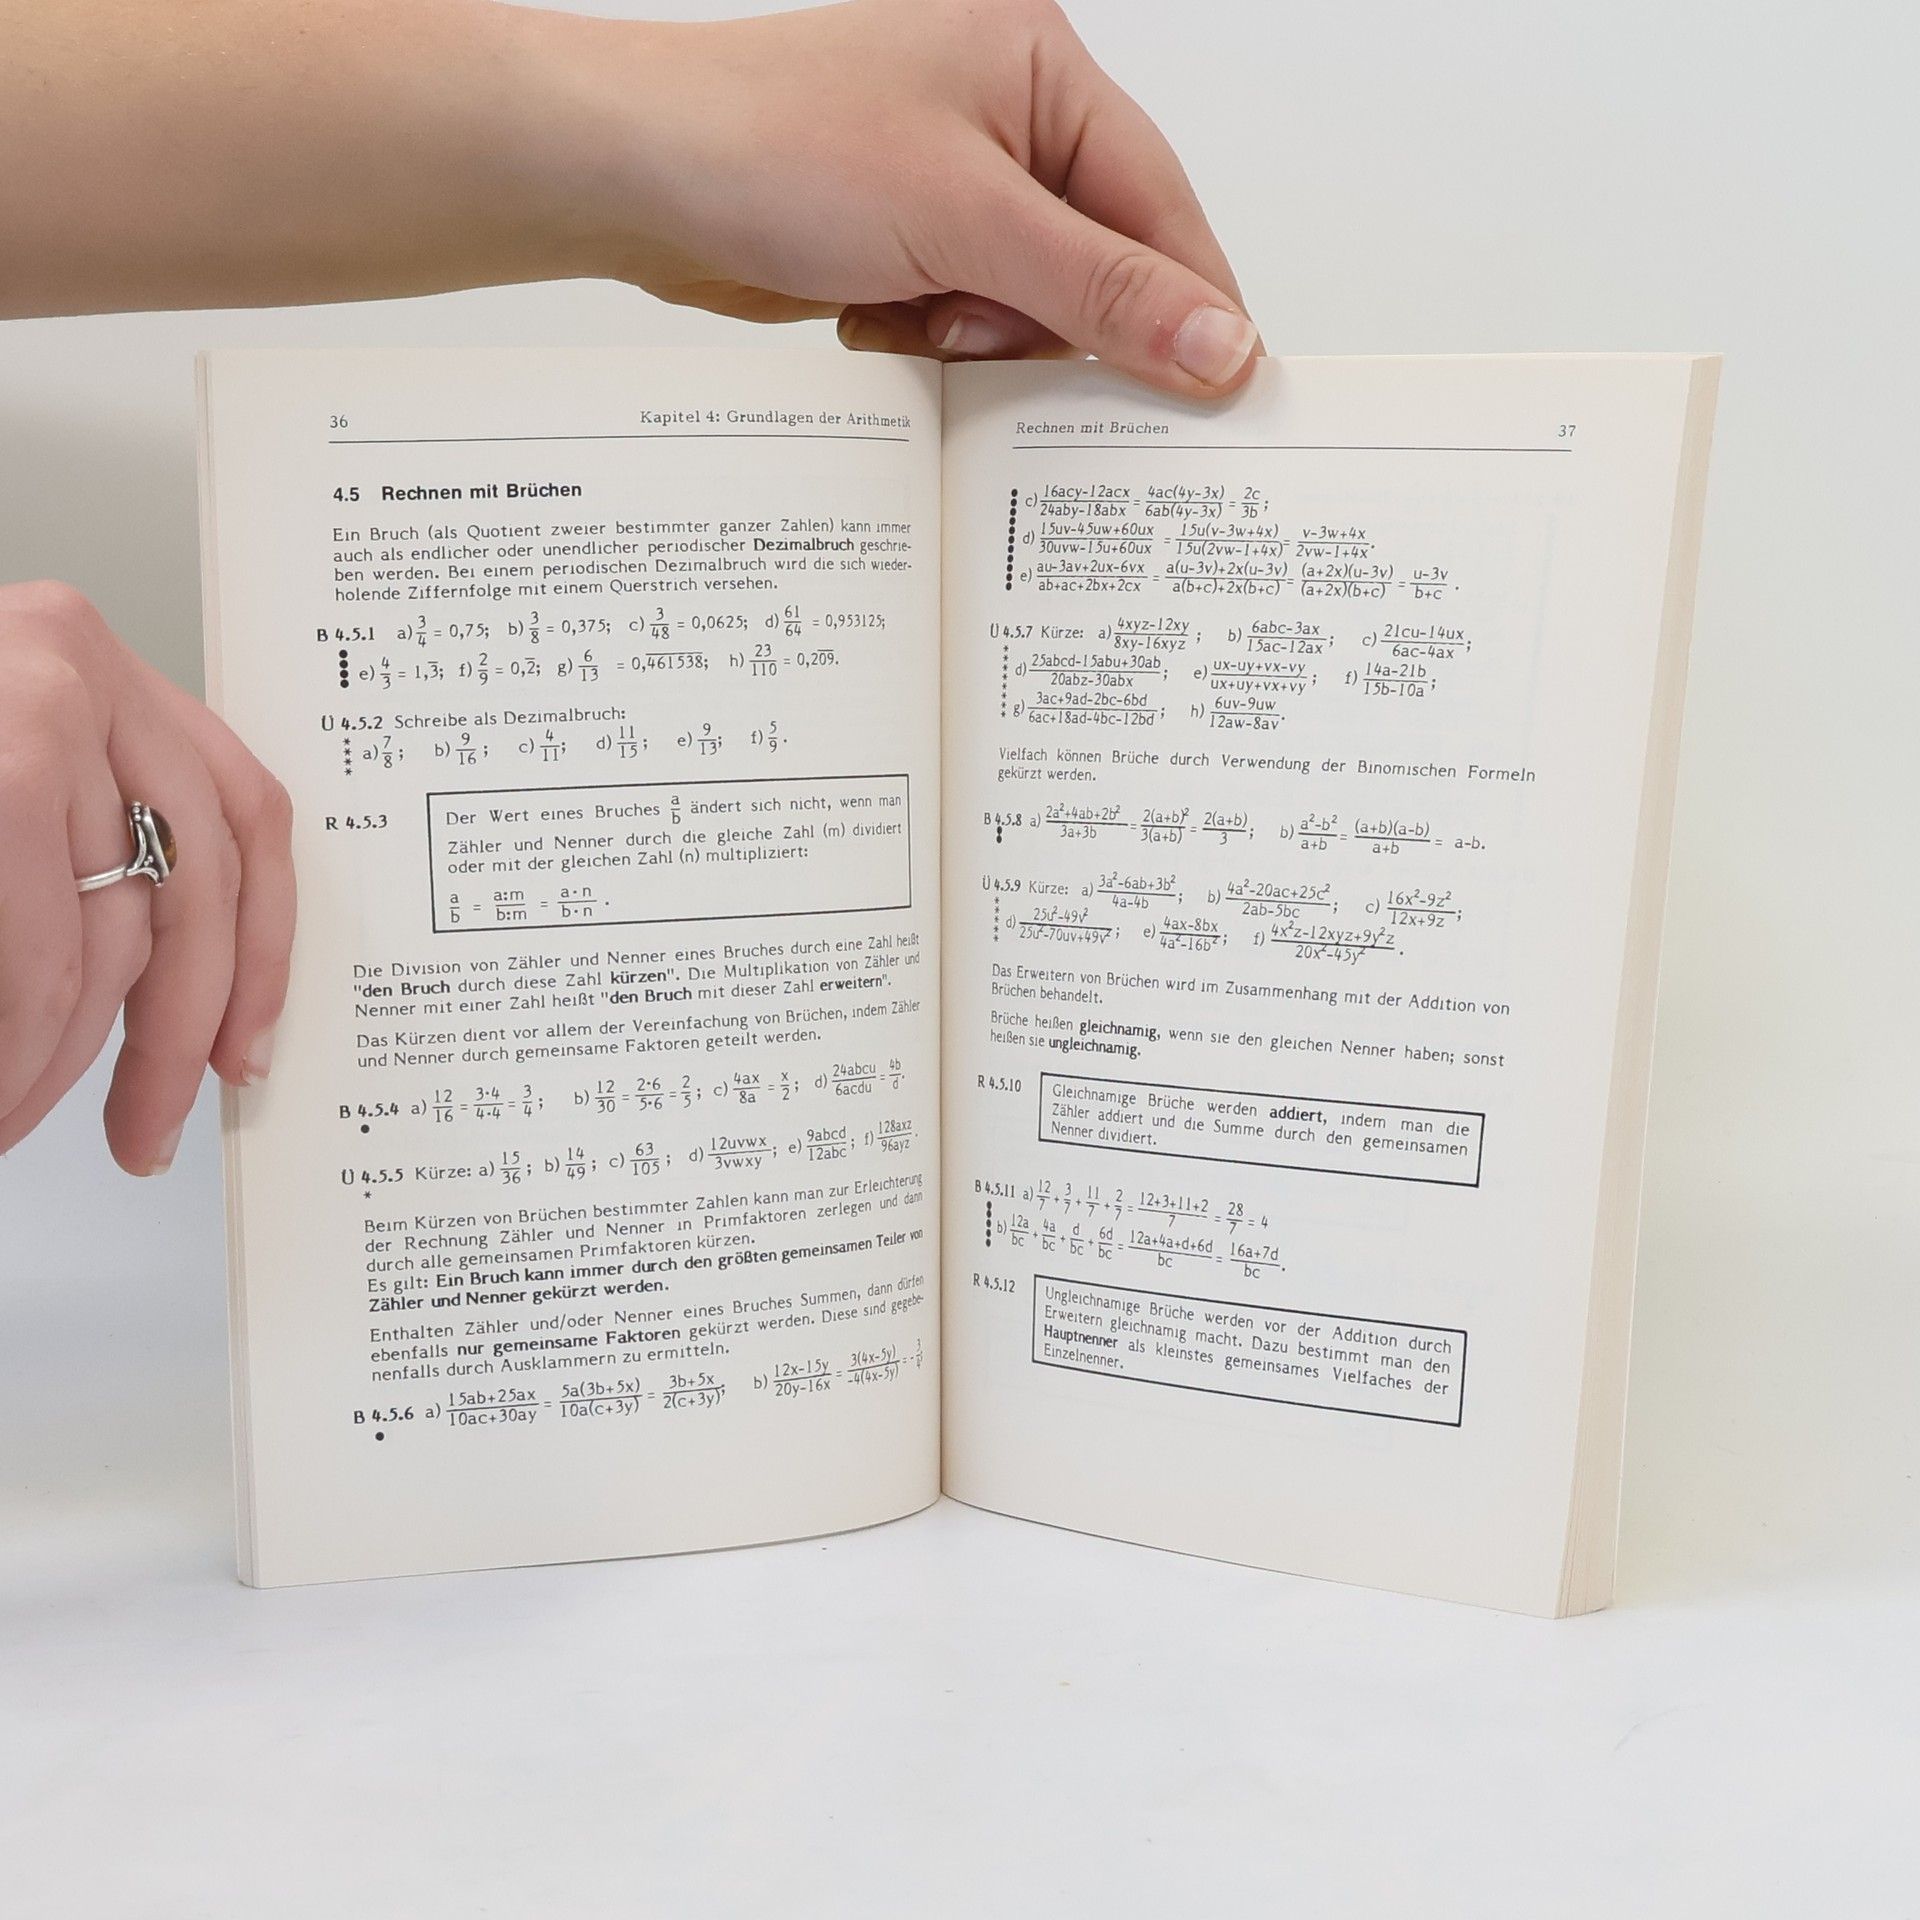 36 Kapitel 4: Grundlagen der Arithmetik
4.5 Rechnen mit Brüchen
Ein Bruch (als Quotient zweier bestimmter ganzer Zahlen) kann immer
auch als endlicher oder unendlicher periodischer Dezimalbruch geschrie-
ben werden. Bei einem periodischen Dezimalbruch wird die sich wieder-
holende Ziffernfolge mit einem Querstrich versehen.
B 4.5.1 a) 3/4 = 0,75; b) 3/8 = 0,375; c) 3/48 = 0,0625; d) 61/64 = 0,953125;
e) 4/3 = 1,3̅; f) 2/9 = 0,2̅; g) 6/13 = 0,4̅6̅1̅5̅3̅8̅; h) 23/110 = 0,20̅9̅.
Ü 4.5.2 Schreibe als Dezimalbruch:
a) 7/8; b) 9/16; c) 4/11; d) 11/15; e) 9/13; f) 5/9.
R 4.5.3
Der Wert eines Bruches a/b ändert sich nicht, wenn man
Zähler und Nenner durch die gleiche Zahl (m) dividiert
oder mit der gleichen Zahl (n) multipliziert:
a/b = a:m/b:m = a·n/b·n.
Die Division von Zähler und Nenner eines Bruches durch eine Zahl heißt
"den Bruch durch diese Zahl kürzen". Die Multiplikation von Zähler und
Nenner mit einer Zahl heißt "den Bruch mit dieser Zahl erweitern".
Das Kürzen dient vor allem der Vereinfachung von Brüchen, indem Zähler
und Nenner durch gemeinsame Faktoren geteilt werden.
B 4.5.4 a) 12/16 = 3·4/4·4 = 3/4; b) 12/30 = 2·6/5·6 = 2/5; c) 4ax/8a = x/2; d) 24abcu/6acdu = 4b/d.
Ü 4.5.5 Kürze: a) 15/36; b) 14/49; c) 63/105; d) 12uvwx/3vwxy; e) 9abcd/12abc; f) 128axz/96ayz.
Beim Kürzen von Brüchen bestimmter Zahlen kann man zur Erleichterung
der Rechnung Zähler und Nenner in Primfaktoren zerlegen und dann
durch alle gemeinsamen Primfaktoren kürzen.
Es gilt: Ein Bruch kann immer durch den größten gemeinsamen Teiler von
Zähler und Nenner gekürzt werden.
Enthalten Zähler und/oder Nenner eines Bruches Summen, dann dürfen
ebenfalls nur gemeinsame Faktoren gekürzt werden. Diese sind gegebe-
nenfalls durch Ausklammern zu ermitteln.
B 4.5.6 a) 15ab+25ax/10ac+30ay = 5a(3b+5x)/10a(c+3y) = 3b+5x/2(c+3y); b) 12x-15y/20y-16x = 3(4x-5y)/-4(4x-5y) = -3/4;
Rechnen mit Brüchen 37
c) 16acy-12acx/24aby-18abx = 4ac(4y-3x)/6ab(4y-3x) = 2c/3b;
d) 15uv-45uw+60ux/30uvw-15u+60ux = 15u(v-3w+4x)/15u(2vw-1+4x) = v-3w+4x/2vw-1+4x.
e) au-3av+2ux-6vx/ab+ac+2bx+2cx = a(u-3v)+2x(u-3v)/a(b+c)+2x(b+c) = (a+2x)(u-3v)/(a+2x)(b+c) = u-3v/b+c.
Ü 4.5.7 Kürze: a) 4xyz-12xy/8xy-16xyz; b) 6abc-3ax/15ac-12ax; c) 21cu-14ux/6ac-4ax;
d) 25abcd-15abu+30ab/20abz-30abx; e) ux-uy+vx-vy/ux+uy+vx+vy; f) 14a-21b/15b-10a;
g) 3ac+9ad-2bc-6bd/6ac+18ad-4bc-12bd; h) 6uv-9uw/12aw-8av.
Vielfach können Brüche durch Verwendung der Binomischen Formeln
gekürzt werden.
B 4.5.8 a) 2a²+4ab+2b²/3a+3b = 2(a+b)²/3(a+b) = 2(a+b)/3; b) a²-b²/a+b = (a+b)(a-b)/a+b = a-b.
Ü 4.5.9 Kürze: a) 3a²-6ab+3b²/4a-4b; b) 4a²-20ac+25c²/2ab-5bc; c) 16x²-9z²/12x+9z;
d) 25u²-49v²/25u²-70uv+49v²; e) 4ax-8bx/4a²-16b²; f) 4x²z-12xyz+9y²z/20x²-45y².
Das Erweitern von Brüchen wird im Zusammenhang mit der Addition von
Brüchen behandelt.
Brüche heißen gleichnamig, wenn sie den gleichen Nenner haben; sonst
heißen sie ungleichnamig.
R 4.5.10
Gleichnamige Brüche werden addiert, indem man die
Zähler addiert und die Summe durch den gemeinsamen
Nenner dividiert.
B 4.5.11 a) 12/7 + 3/7 + 11/7 + 2/7 = 12+3+11+2/7 = 28/7 = 4
b) 12a/bc + 4a/bc + d/bc + 6d/bc = 12a+4a+d+6d/bc = 16a+7d/bc.
R 4.5.12
Ungleichnamige Brüche werden vor der Addition durch
Erweitern gleichnamig macht. Dazu bestimmt man den
Hauptnenner als kleinstes gemeinsames Vielfaches der
Einzelnenner.